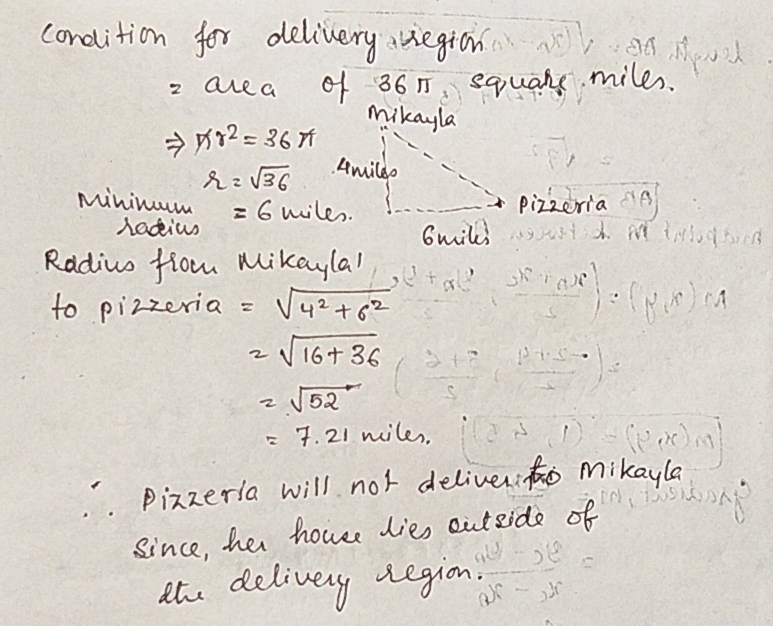 Condition for delivery region
= area of 36 π square miles.
Mikayla
⇒ πr² = 36π
4miles
r = √36
Pizzeria
Mininum radius = 6 miles.
6miles
Radius from Mikayla'
to pizzeria = √4² + 6²
= √16 + 36
= √52
= 7.21 miles.
∴ Pizzeria will not deliver to Mikayla
since, her house lies outside of
the delivery region.